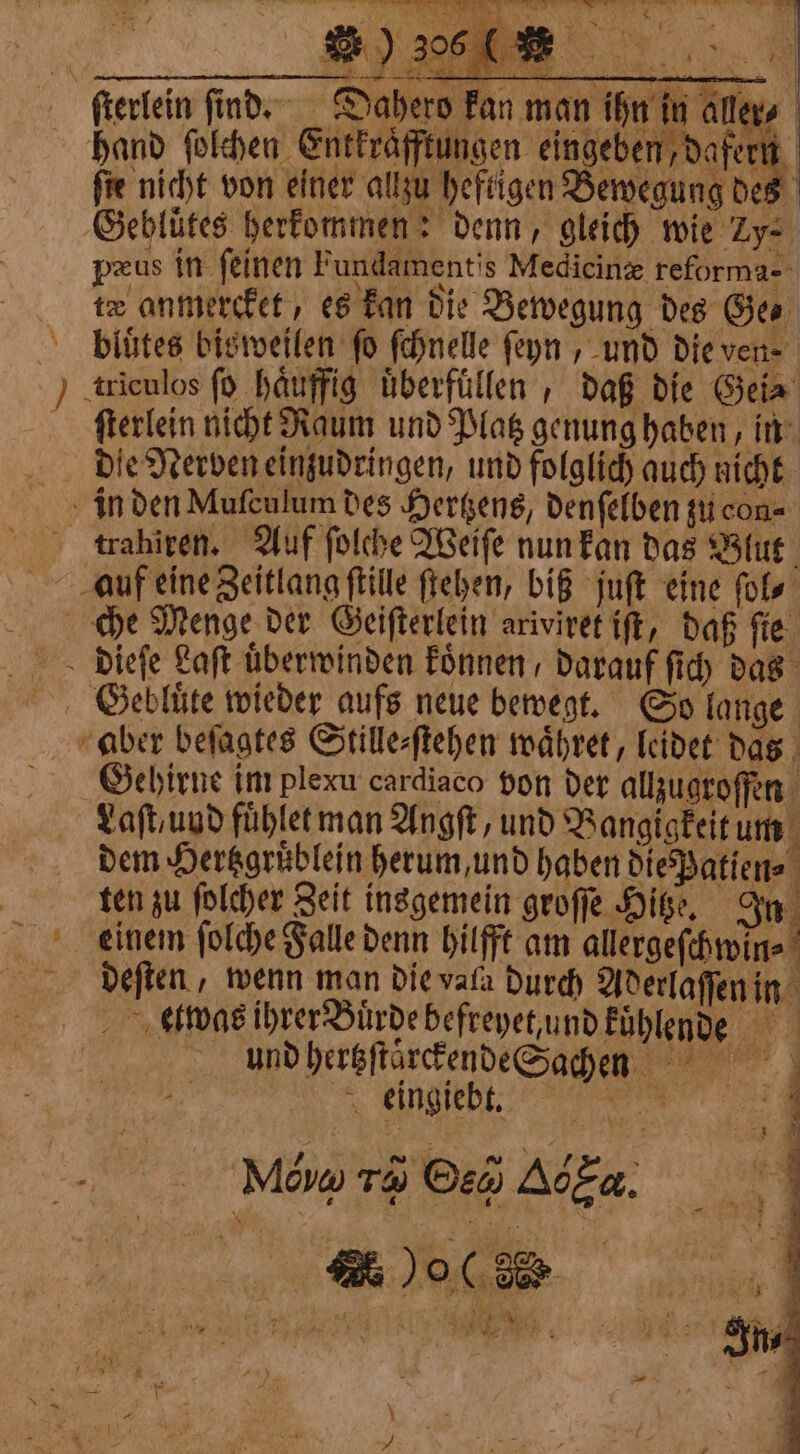 ) 306 (
ſterlein ſind. Dahero kan man ihn in aller⸗
hand ſolchen Entkraͤfftungen eingeben, dafern
ſie nicht von einer allzu hefftigen Bewegung des
Gebluͤtes herkommen: denn, gleich wie Zy-
pæus in ſeinen Fundamentis Medicinæ reforma-
tæ anmercket, es kan die Bewegung des Ge⸗
bluͤtes bisweilen ſo ſchnelle ſeyn, und die ven-
triculos ſo haͤuffig uͤberfuͤllen, daß die Gei⸗
ſterlein nicht Raum und Platz genung haben, in
die Nerven einzudringen, und folglich auch nicht
in den Muſculum des Hertzens, denſelben zu con-
trahiren. Auf ſolche Weiſe nun kan das Blut
auf eine Zeitlang ſtille ſtehen, biß juſt eine ſol⸗
che Menge der Geiſterlein ariviret iſt, daß ſie
dieſe Laſt uͤberwinden koͤnnen, darauf ſich das
Gebluͤte wieder aufs neue bewegt. So lange
aber beſagtes Stille⸗ſtehen waͤhret, leidet das
Gehirne im plexu cardiaco von der allzugroſſen
Laſt, uud fuͤhlet man Angſt, und Bangigkeit um
dem Hertzgruͤblein herum, und haben die Patien⸗
ten zu ſolcher Zeit insgemein groſſe Hitze. In
einem ſolche Falle denn hilfft am allergeſchwin⸗
deſten, wenn man die vaſa durch Aderlaſſen in
etwas ihrer Buͤrde befreyet, und kuͤhlende
und hertzſtaͤrckende Sachen
eingiebt.
Μόνῳ τῷ Θεῷ Δόξα.
) o (
In⸗